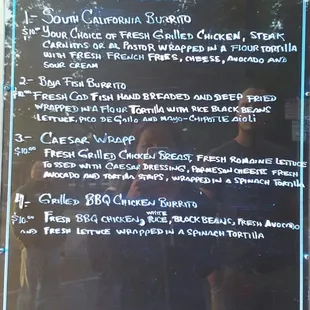 1- South California Burrito
$10.00 Your Choice of Fresh Grilled Chicken, Steak,
Carnitas or Al Pastor wrapped in a flour tortilla
with Fresh French Fries, Cheese, Avocado and
Sour Cream
2- Baja Fish Burrito
Fresh Cod Fish hand breaded and deep fried
wrapped in a flour tortilla with rice black beans
lettuce, pico de Gallo and mayo-chipotle aioli
3- Caesar Wrapp
$10.00 Fresh Grilled Chicken Breast, Fresh Romaine lettuce
tossed with Caesar dressing, parmesan cheese fresh
avocado and tortilla strips, wrapped in a spinach tortilla
4- Grilled BBQ Chicken Burrito
$10.00 Fresh BBQ chicken, white rice, black beans, fresh avocado
and fresh lettuce wrapped in a spinach tortilla